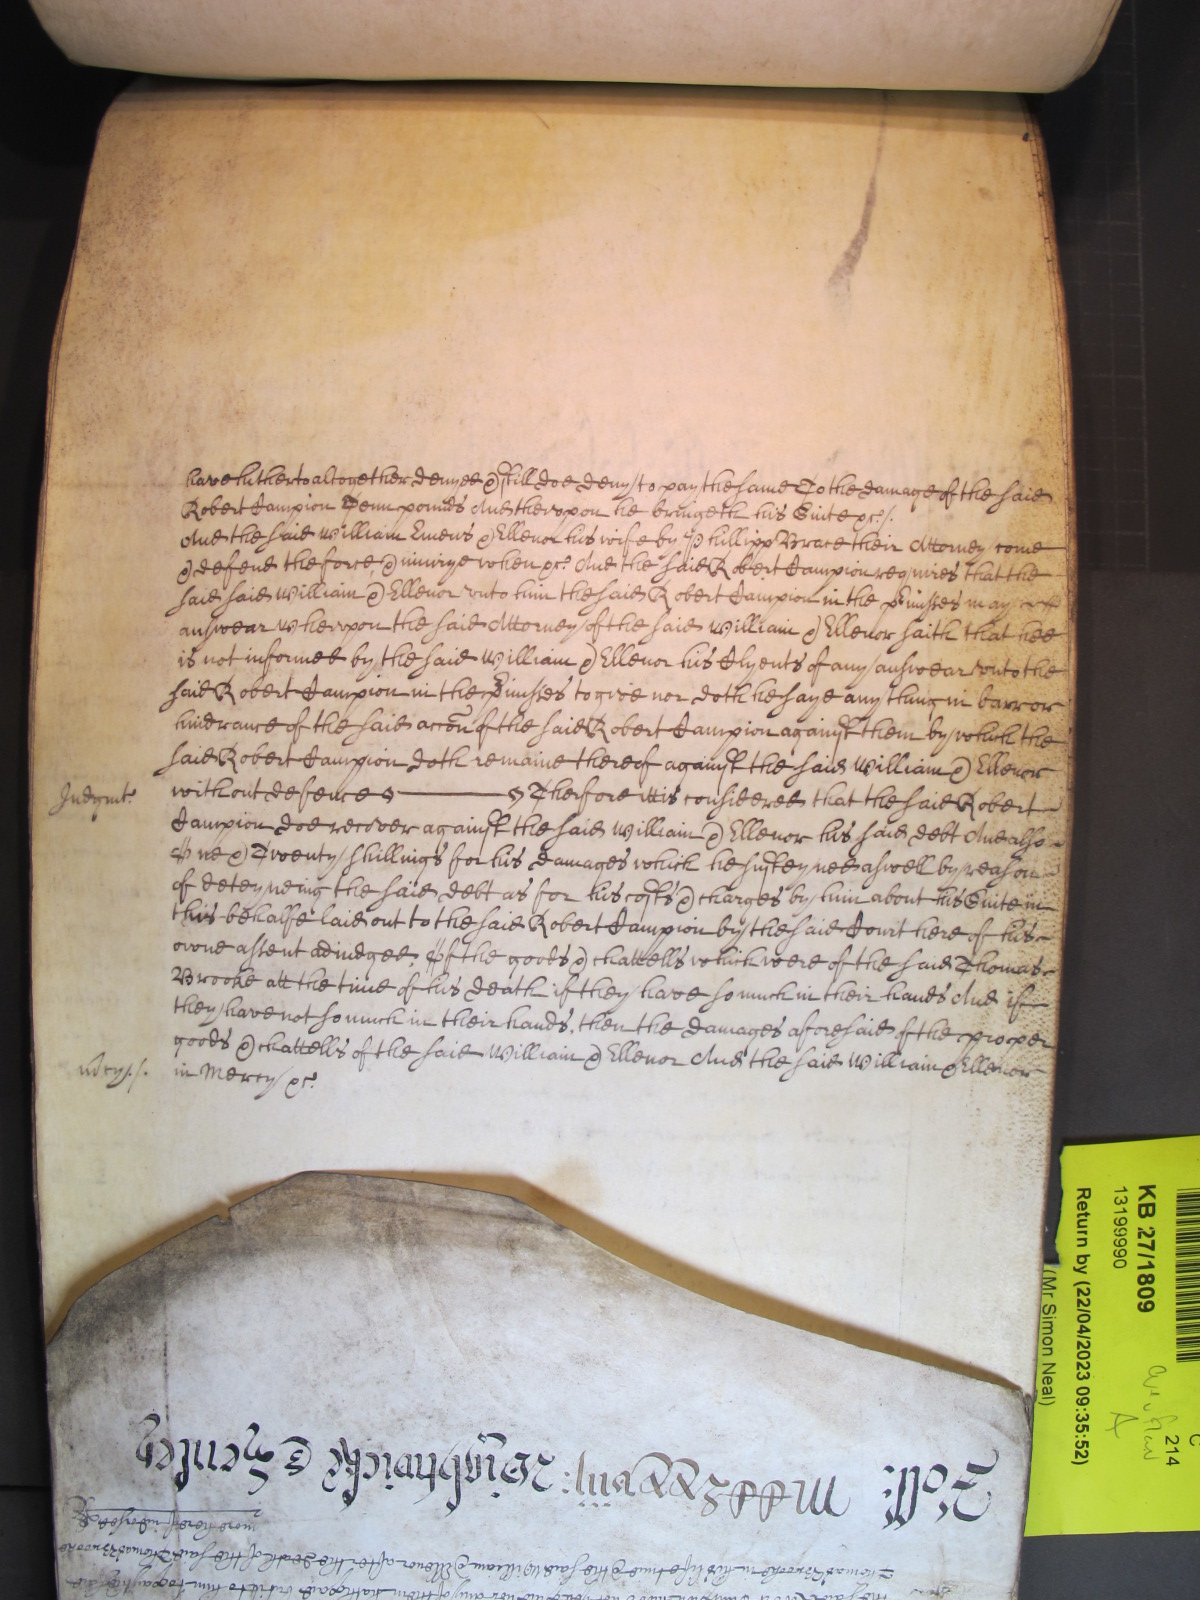 have hitherto altogether denyed & still doe deny to pay the same To the damage of the said
Robert Campion Tenn pounds And therupon he bringeth his Suite &c./.
And the said William Emews & Ellenor his wife by Phillipp Brace their Attorney come
& defend the force & iniurye when &c. And the said Robert Campion requires that the
said said William & Ellenor vnto him the said Robert Campion in the p̄misses may
answear Wherupon the said Attorney of the said William & Ellenor saith that hee
is not informed by the said William & Ellenor his Clyents of any answear vnto the
said Robert Campion in the p̄misses to give nor doth he saye any thing in barr or
hindrance of the said accon̄ of the said Robert Campion against them by which the
said Robert Campion doth remaine thereof against the said William & Ellenor
Judgmt. without defence Therfore itt is considered that the said Robert
Campion doe recover against the said William & Ellenor his said debt And also
One & Twenty shillings for his damages which he susteyned aswell by reason
of deteyneing the said debt as for his costs & charges by him about his Suite in
this behalfe laid out to the said Robert Campion by the said Court here of his
owne assent adiudged Of the goods & chattells which were of the said Thomas
Brooke att the time of his death if they have so much in their hands And if
they have not so much in their hands, then the damages aforesaid of the proper
goods & chattells of the said William & Ellenor And the said William & Ellenor
in Mercy &c.
Roll:
Wightwicke & Henley
more hereof indorsed
Thomas Brooke in his life time & the said William & Ellenor after the death of the said Thomas Brooke
KB 27/1809
13199990
Return by (22/04/2023 09:35:52)
(Mr Simon Neal)
C
214
A